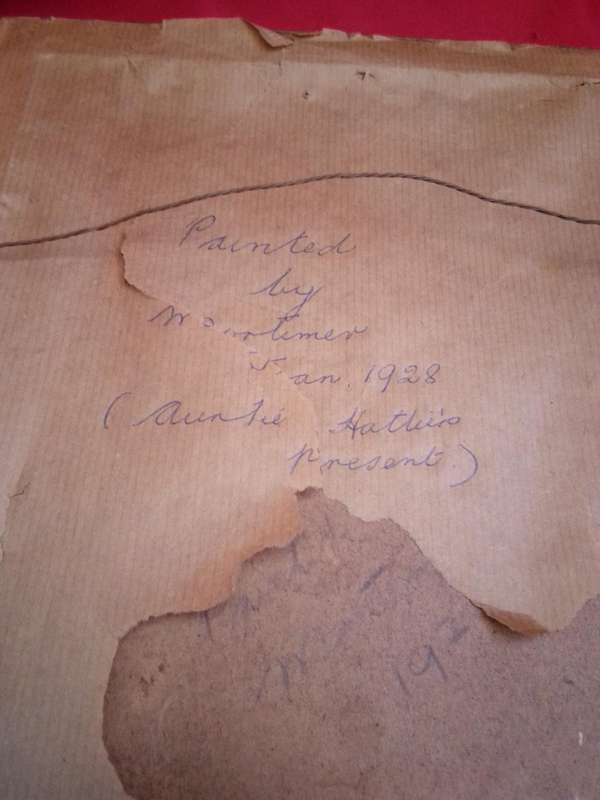 Painted
by
Mortimer
Jan. 1928
(Auntie Hattie's
present.)
19